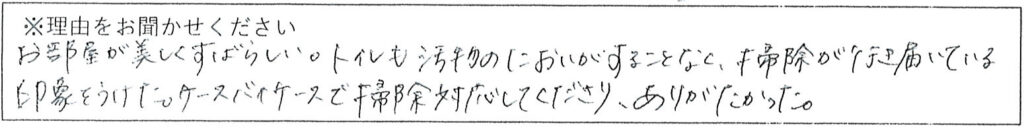 ※理由をお聞かせください
お部屋が美しくすばらしい。トイレも汚物のにおいがすることなく、掃除が行き届いている
印象をうけた。ケースバイケースで掃除対応してくださり、ありがたかった。